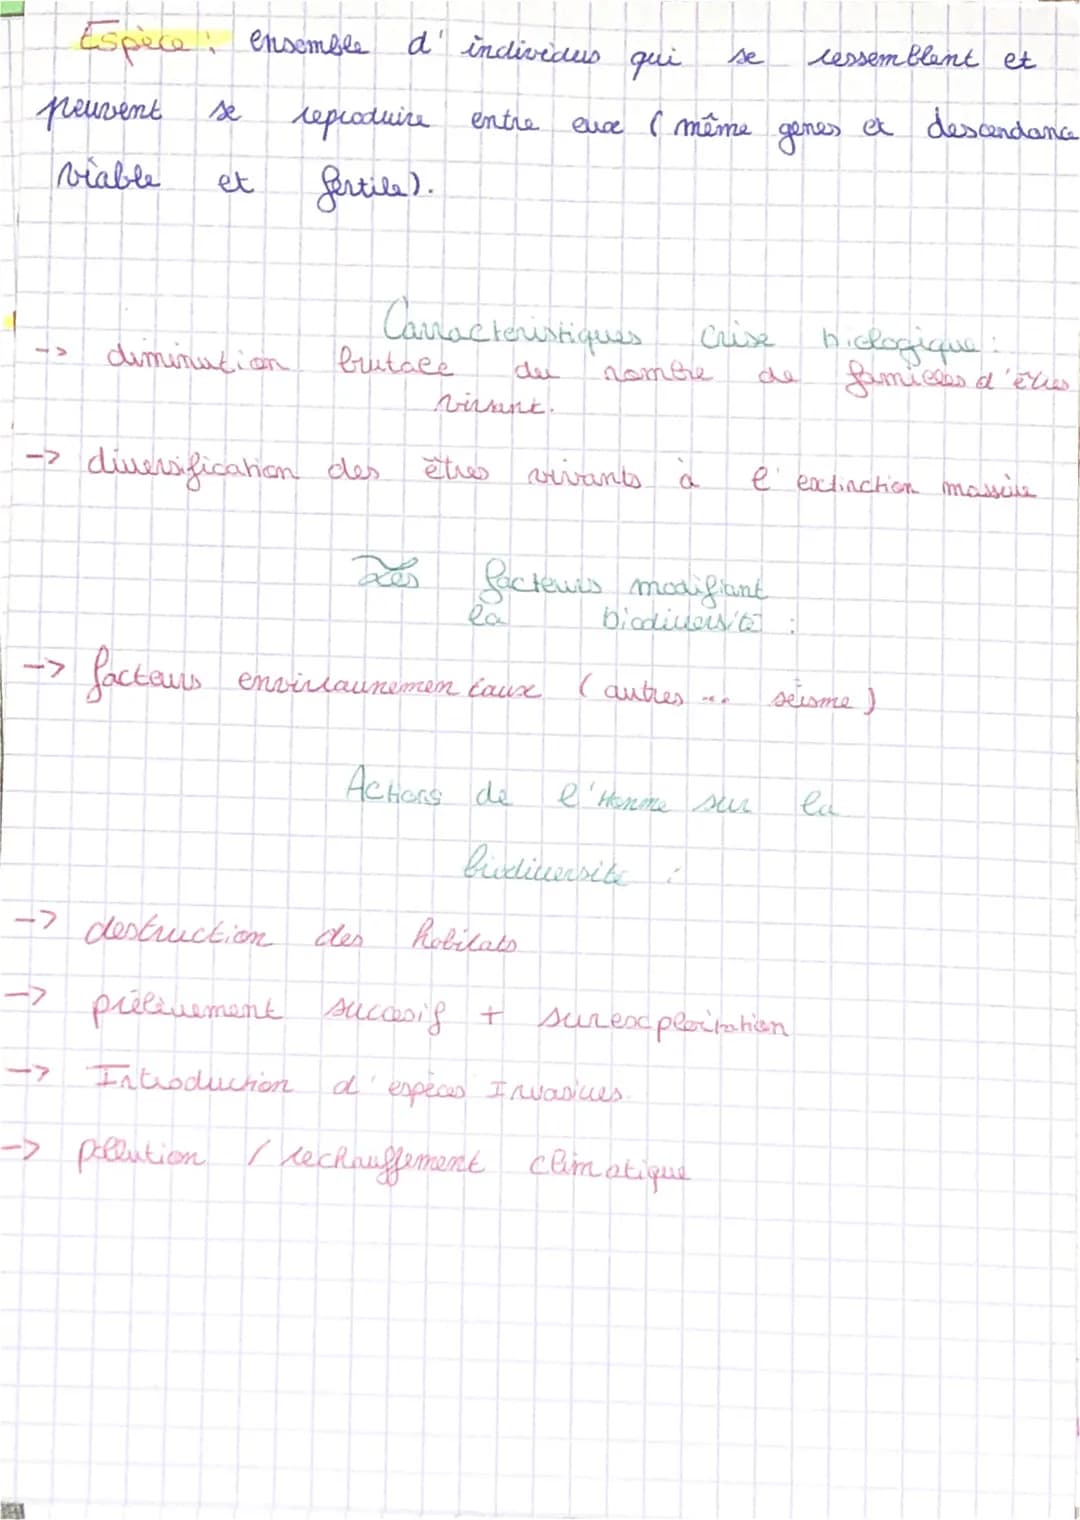 Espèce : ensemble d' individus qui se ressemblent et
peuvent se reproduire entre eux ( même genes et descendance
viable et fertile).
Carracteristiques Crise biologique :
-> diminution brutale du nombre de familles d'êtres
vivant.
-> diversification des êtres vivants à l' extinction massive
Les facteurs modifiant
la biodiversité :
-> facteurs envirraunemen taux ( autres ... séisme )
Actions de l'Homme sur la
biodiversite :
-> destruction des habitats
-> prélèvement succesif + surexploitation
-> Introduction d' espèces Invasives.
-> pollution / rechauffement climatique